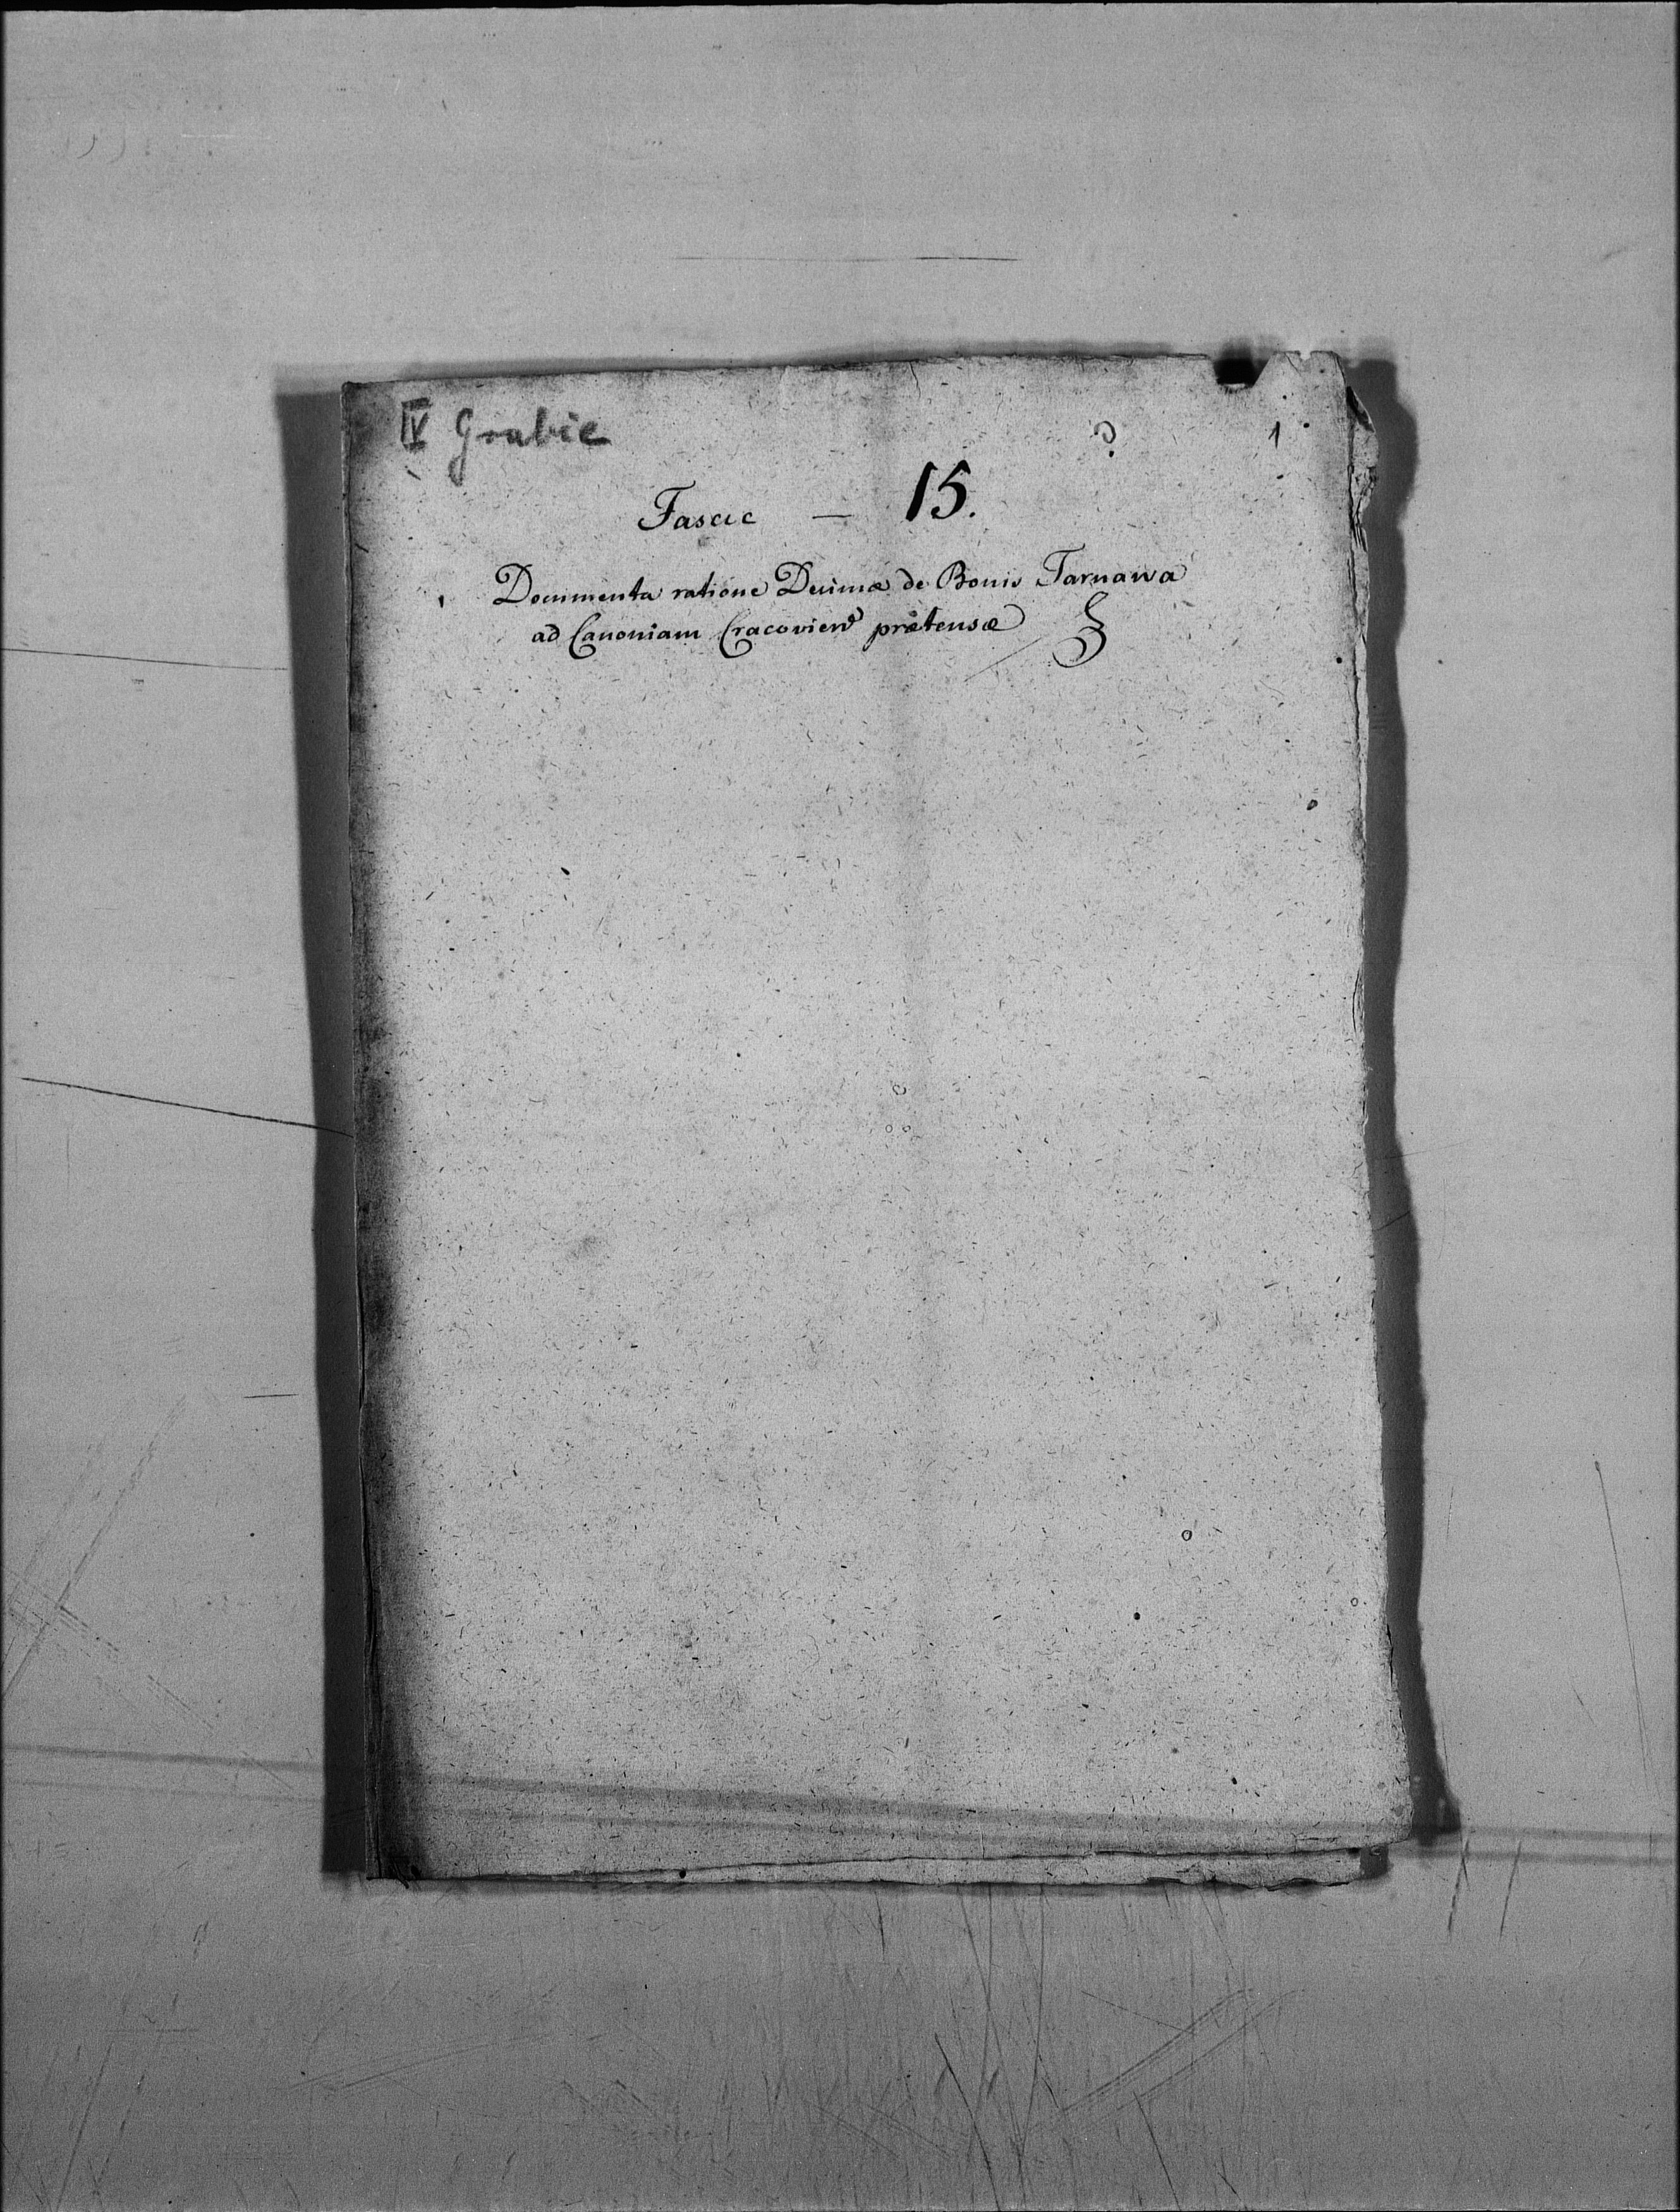 IV Grabie ? 1
Fascic — 15.
Documenta ratione Decimæ de Bonis Tarnawa
ad Canoniam Cracovien prætensæ